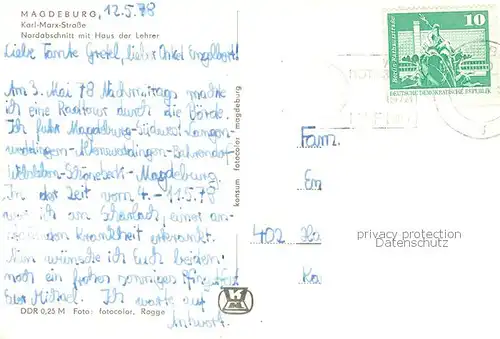 MAGDEBURG, 12.5.78
Karl-Marx-Straße
Nordabschnitt mit Haus der Lehrer
Liebe Tante Gretel, lieber Onkel Engelbert!
Am 3. Mai 78 Nachmittags machte
ich eine Radtour durch die Börde.
Ich fuhr Magdeburg-Südwest-Langen-
weddingen-Altenweddingen-Bahrendorf
Welsleben-Schönebeck-Magdeburg.
In der Zeit vom 4.-11.5.78
war ich an Scharlach, einer an-
Krankheit erkrankt.
Nun wünsche ich Euch beiden
noch ein frohes sonniges Pfingstfest
Euer Michael. Ich warte auf
Antwort.
DDR 0,25 M Foto: fotocolor, Rogge
konsum fotocolor magdeburg
10
DEUTSCHE DEMOKRATISCHE REPUBLIK
Fam.
En
402 Ha
Ka
privacy protection
Datenschutz